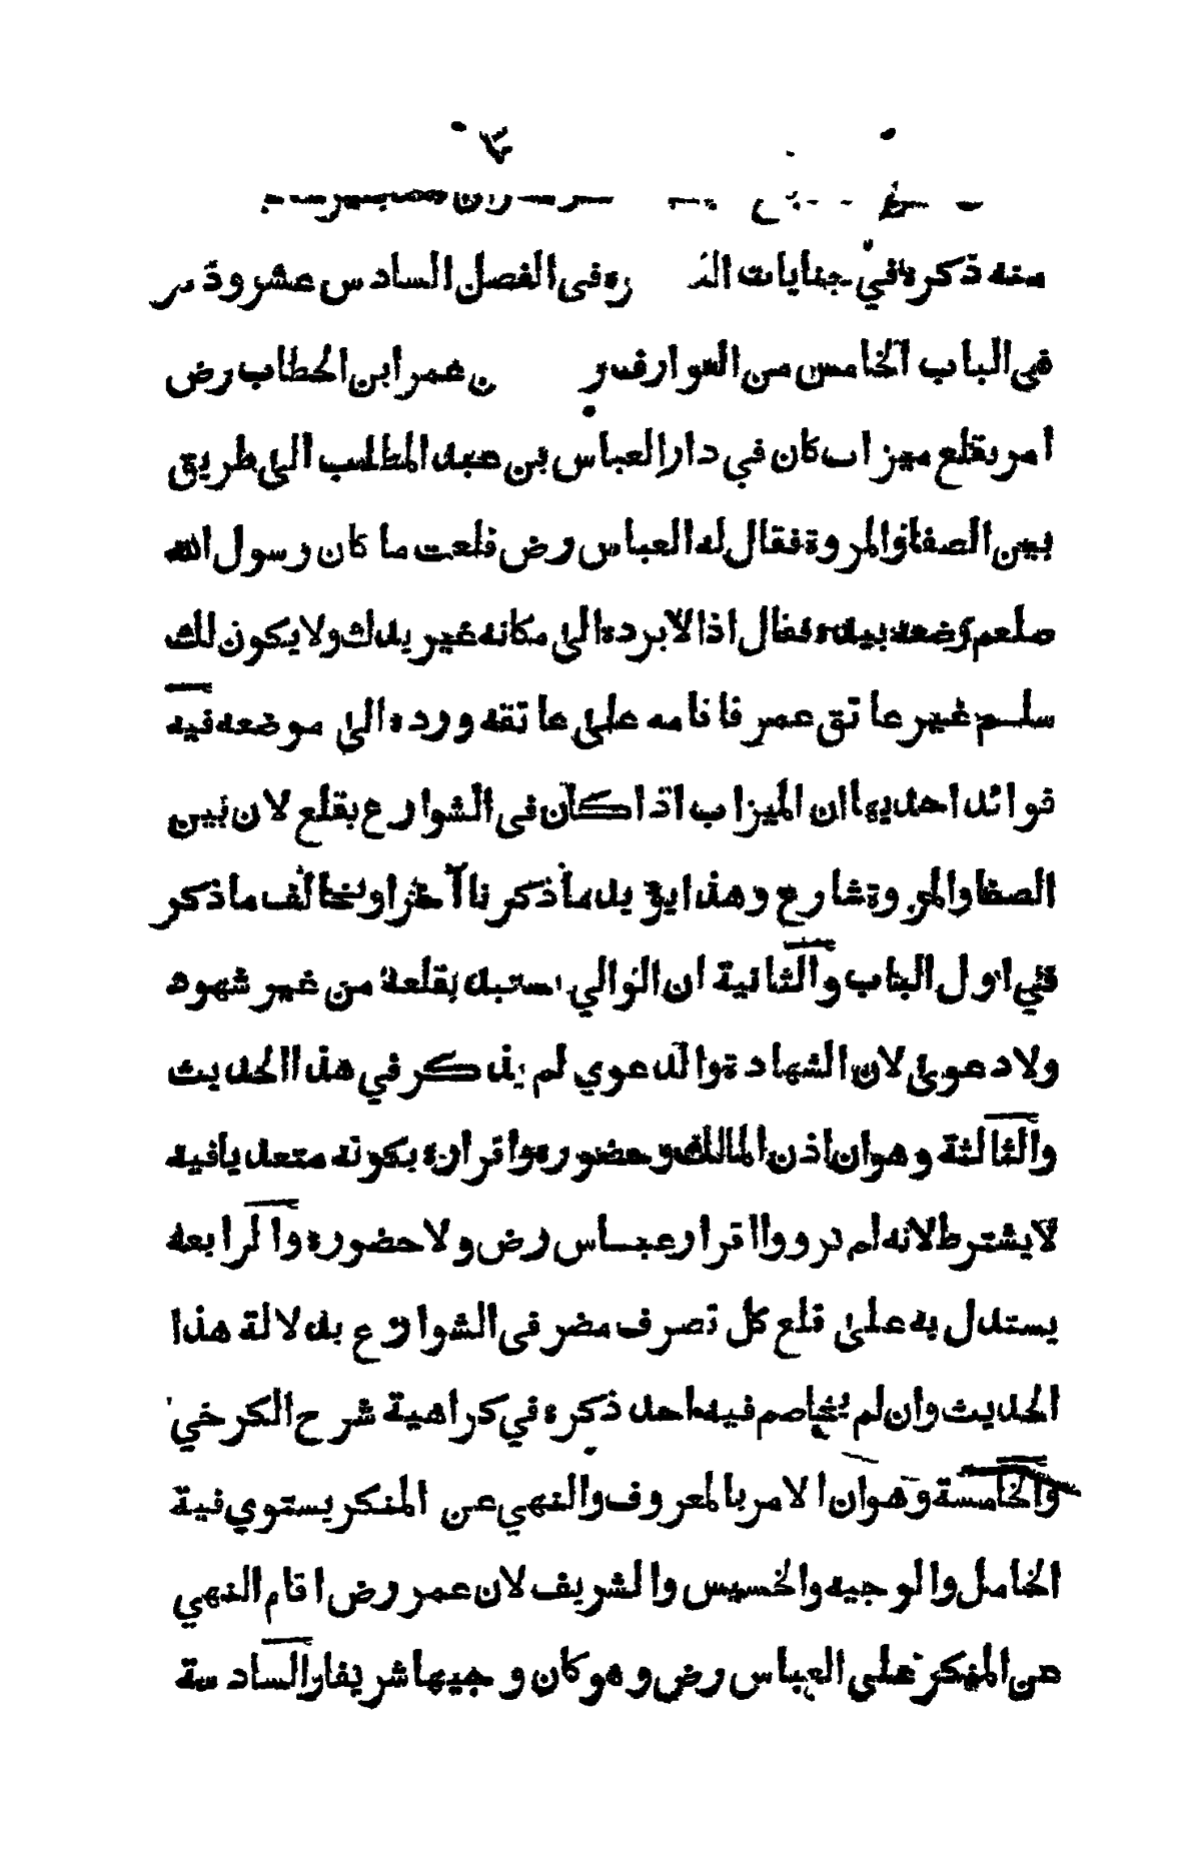 منه ذكره في جنايات الذ ره فى الفصل السادس عشر وذ
فى الباب الخامس من العوارف و ن عمر ابن الخطاب رض
امر بقلع ميزاب كان في دار العباس بن عبد المطلب الى طريق
بين الصفا والمروة فقال له العباس رض قلعت ما كان رسول الله
صلعم وضعه بيده فقال اذا لا برده الى مكانه غير يدك ولا يكون لك
سلم غير عاتق عمر فاقامه على عاتقه ورده الى موضعه فيه
فوائد احديها ان الميزاب اذا كان فى الشوارع يقلع لان بين
الصفا والمروة شارع وهذا يؤيد ما ذكرنا آخرا ويخالف ما ذكر
في اول الباب والثانية ان الوالي يستبد بقلعه من غير شهود
ولا دعوى لان الشهادة والدعوي لم يذكر في هذا الحديث
والثالثة وهو ان اذن المالك وحضوره واقراره بكونه متعديا فيه
لا يشترط لانه لم يرووا اقرار عباس رض ولا حضوره والرابعه
يستدل به على قلع كل تصرف مضر فى الشوارع بدلالة هذا
الحديث وان لم يخاصم فيه احد ذكره في كراهية شرح الكرخي
والخامسة وهو ان الامر بالمعروف والنهي عن المنكر يستوي فية
الخامل والوجيه والخسيس والشريف لان عمر رض اقام النهي
عن المنكر على العباس رض وهو كان وجيها شريفا والسادسة